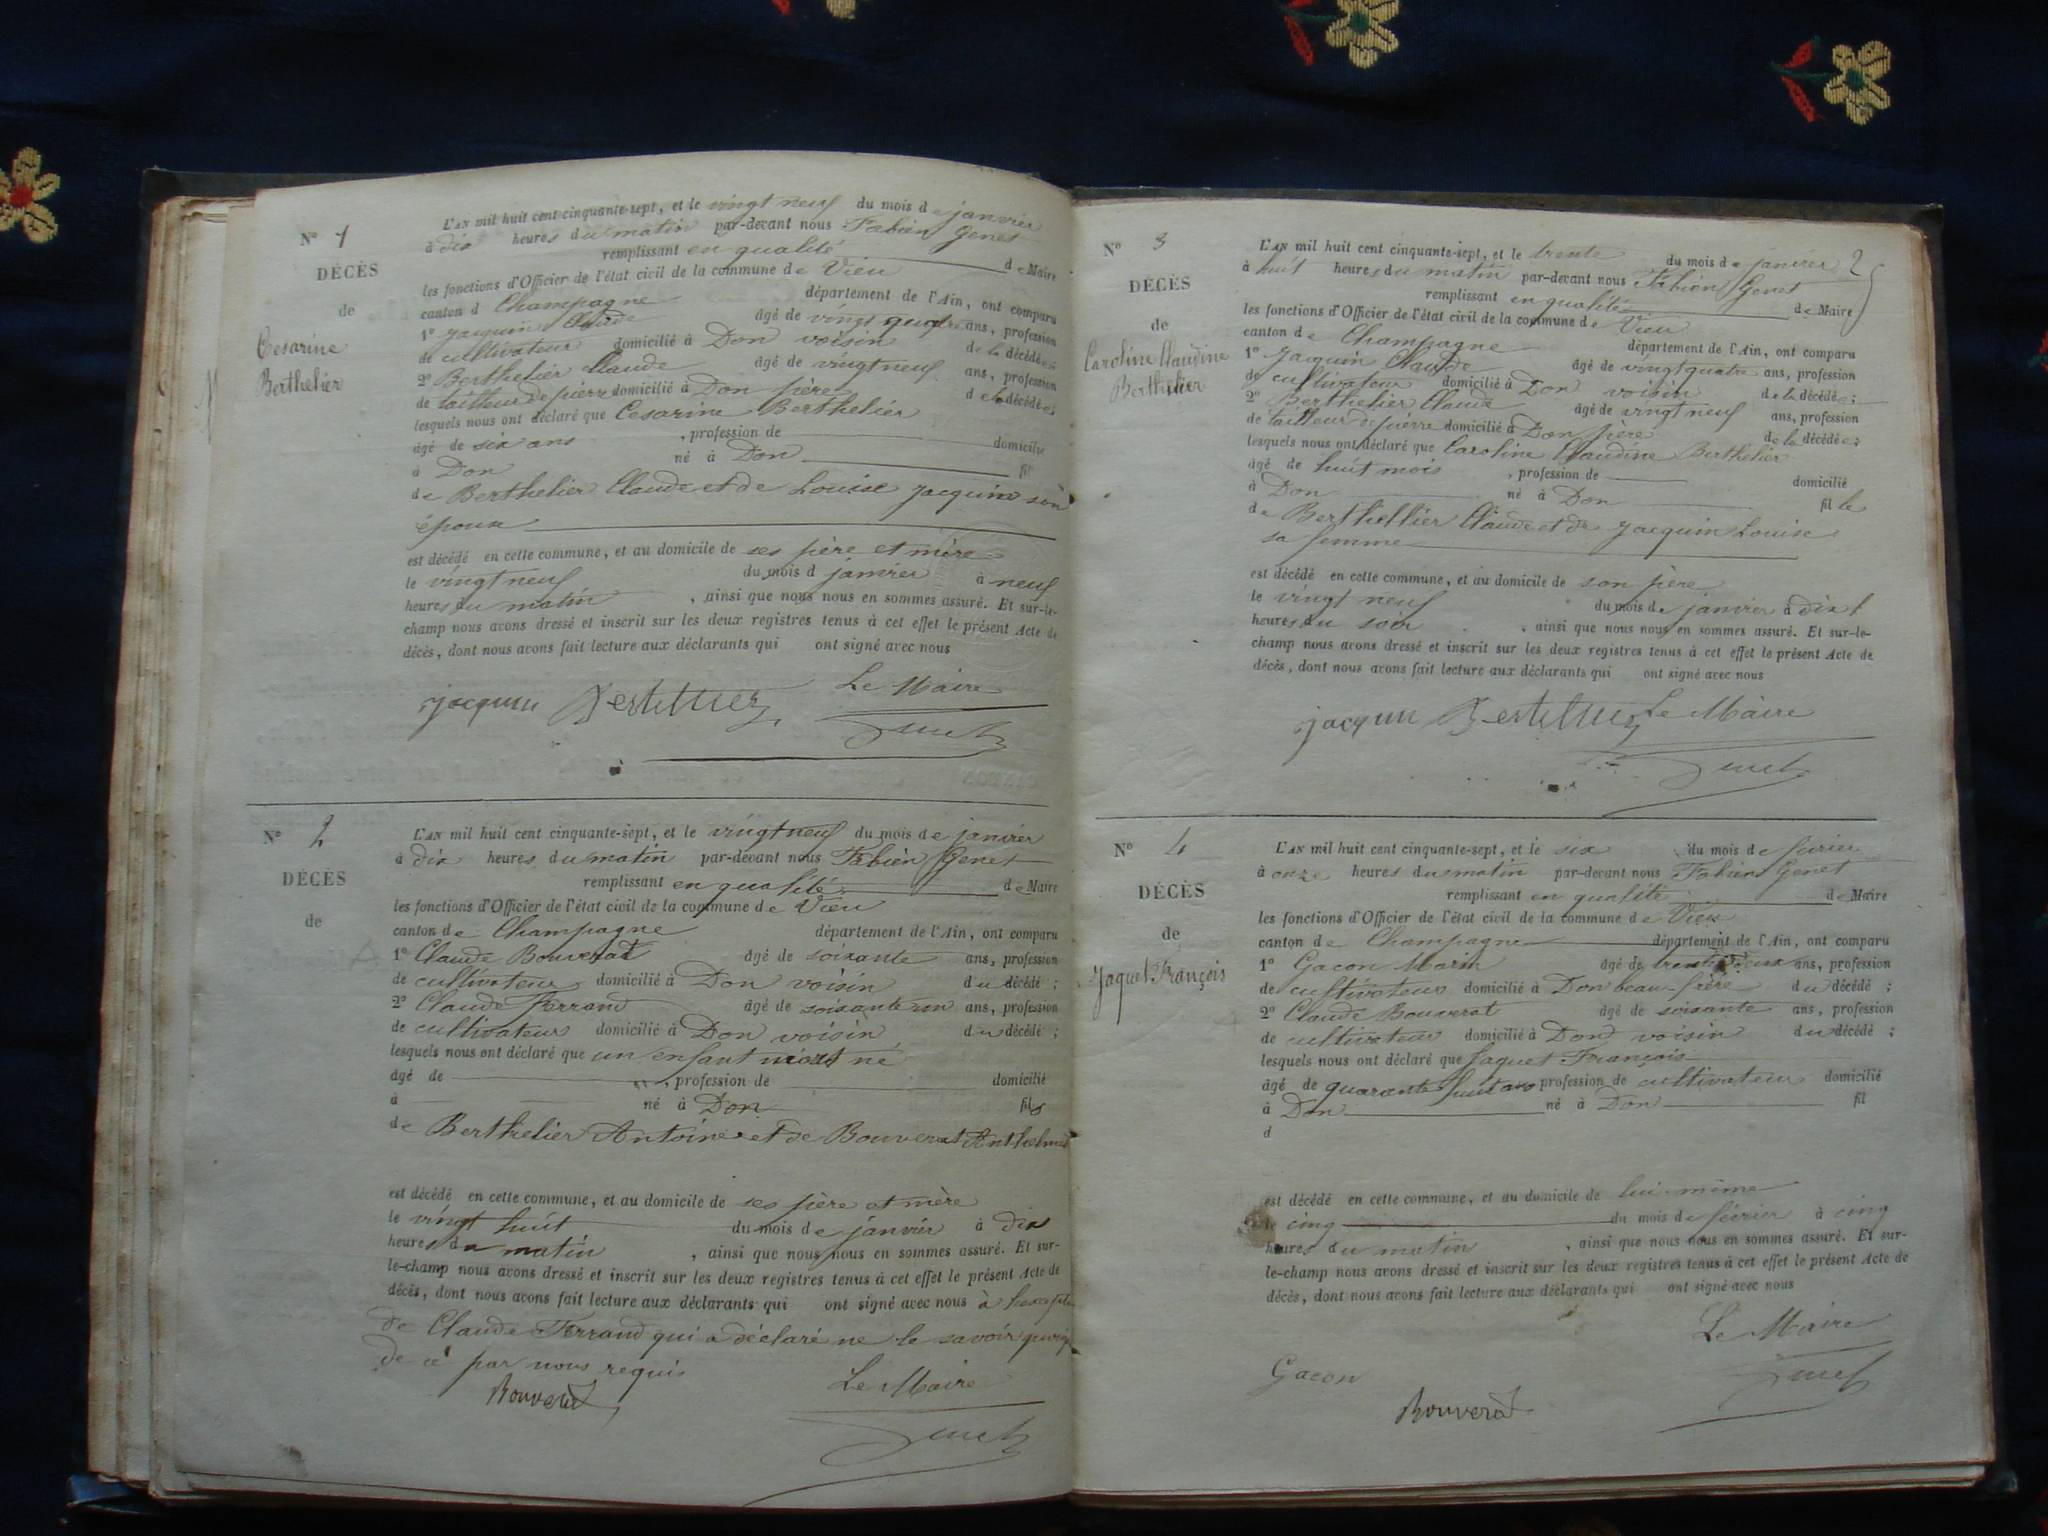 N° 1
DÉCÈS
de
Cesarine
Berthelier
L'AN mil huit cent cinquante-sept, et le vingt neuf du mois de janvier
à dix heures du matin par-devant nous Fabien Genet
remplissant en qualité de Maire
les fonctions d'Officier de l'état civil de la commune de Vieu
canton d Champagne département de l'Ain, ont comparu
1° Jacquin Claude âgé de vingt quatre ans, profession
de cultivateur domicilié à Don voisin de la décédée;
2° Berthelier Claude âgé de vingt neuf ans, profession
de tailleur de pierre domicilié à Don père de la décédée;
lesquels nous ont déclaré que Cesarine Berthelier
âgé de six ans , profession de domicilié
à Don né à Don fil
de Berthelier Claude et de Louise Jacquin son
épouse
est décédé en cette commune, et au domicile de ses père et mère
le vingt neuf du mois d janvier à neuf
heures du matin , ainsi que nous nous en sommes assuré. Et sur-le-
champ nous avons dressé et inscrit sur les deux registres tenus à cet effet le présent Acte de
décès, dont nous avons fait lecture aux déclarants qui ont signé avec nous
jacquin Berthelier Le Maire
Genet
N° 2
DÉCÈS
de
L'AN mil huit cent cinquante-sept, et le vingt neuf du mois de janvier
à dix heures du matin par-devant nous Fabien Genet
remplissant en qualité de Maire
les fonctions d'Officier de l'état civil de la commune de Vieu
canton de Champagne département de l'Ain, ont comparu
1° Claude Bouverat âgé de soixante ans, profession
de cultivateur domicilié à Don voisin du décédé;
2° Claude Ferrand âgé de soixante un ans, profession
de cultivateur domicilié à Don voisin du décédé;
lesquels nous ont déclaré que un enfant mort né
âgé de , profession de domicilié
à né à Don fils
de Berthelier Antoine et de Bouverat Anthelme
est décédé en cette commune, et au domicile de ses père et mère
le vingt huit du mois de janvier à dix
heures du matin , ainsi que nous nous en sommes assuré. Et sur-
le-champ nous avons dressé et inscrit sur les deux registres tenus à cet effet le présent Acte de
décès, dont nous avons fait lecture aux déclarants qui ont signé avec nous à
de Claude Ferrand qui a déclaré ne le savoir
de ce par nous requis
Bouverat Le Maire
Genet
N° 3
DÉCÈS
de
Caroline Claudine
Berthelier
2
L'AN mil huit cent cinquante-sept, et le trente du mois de janvier
à huit heures du matin par-devant nous Fabien Genet
remplissant en qualité de Maire
les fonctions d'Officier de l'état civil de la commune de Vieu
canton de Champagne département de l'Ain, ont comparu
1° Jacquin Claude âgé de vingt quatre ans, profession
de cultivateur domicilié à Don voisin de la décédée;
2° Berthelier Claude âgé de vingt neuf ans, profession
de tailleur de pierre domicilié à Don père de la décédée;
lesquels nous ont déclaré que Caroline Claudine Berthelier
âgé de huit mois , profession de domicilié
à Don né à Don fille
de Berthellier Claude et de Jacquin Louise
sa femme
est décédé en cette commune, et au domicile de son père
le vingt neuf du mois de janvier à dix
heures du soir , ainsi que nous nous en sommes assuré. Et sur-le-
champ nous avons dressé et inscrit sur les deux registres tenus à cet effet le présent Acte de
décès, dont nous avons fait lecture aux déclarants qui ont signé avec nous
jacquin Berthelier Le Maire
Genet
N° 4
DÉCÈS
de
Jaquet François
L'AN mil huit cent cinquante-sept, et le six du mois de février
à onze heures du matin par-devant nous Fabien Genet
remplissant en qualité de Maire
les fonctions d'Officier de l'état civil de la commune de Vieu
canton de Champagne département de l'Ain, ont comparu
1° Gacon Marin âgé de trente deux ans, profession
de cultivateur domicilié à Don beau-frère du décédé;
2° Claude Bouverat âgé de soixante ans, profession
de cultivateur domicilié à Don voisin du décédé;
lesquels nous ont déclaré que Jaquet François
âgé de quarante huit ans profession de cultivateur domicilié
à Don né à Don fil
d
est décédé en cette commune, et au domicile de lui-même
le cinq du mois de février à cinq
heures du matin , ainsi que nous nous en sommes assuré. Et sur-
le-champ nous avons dressé et inscrit sur les deux registres tenus à cet effet le présent Acte de
décès, dont nous avons fait lecture aux déclarants qui ont signé avec nous
Le Maire
Gacon Genet
Bouverat